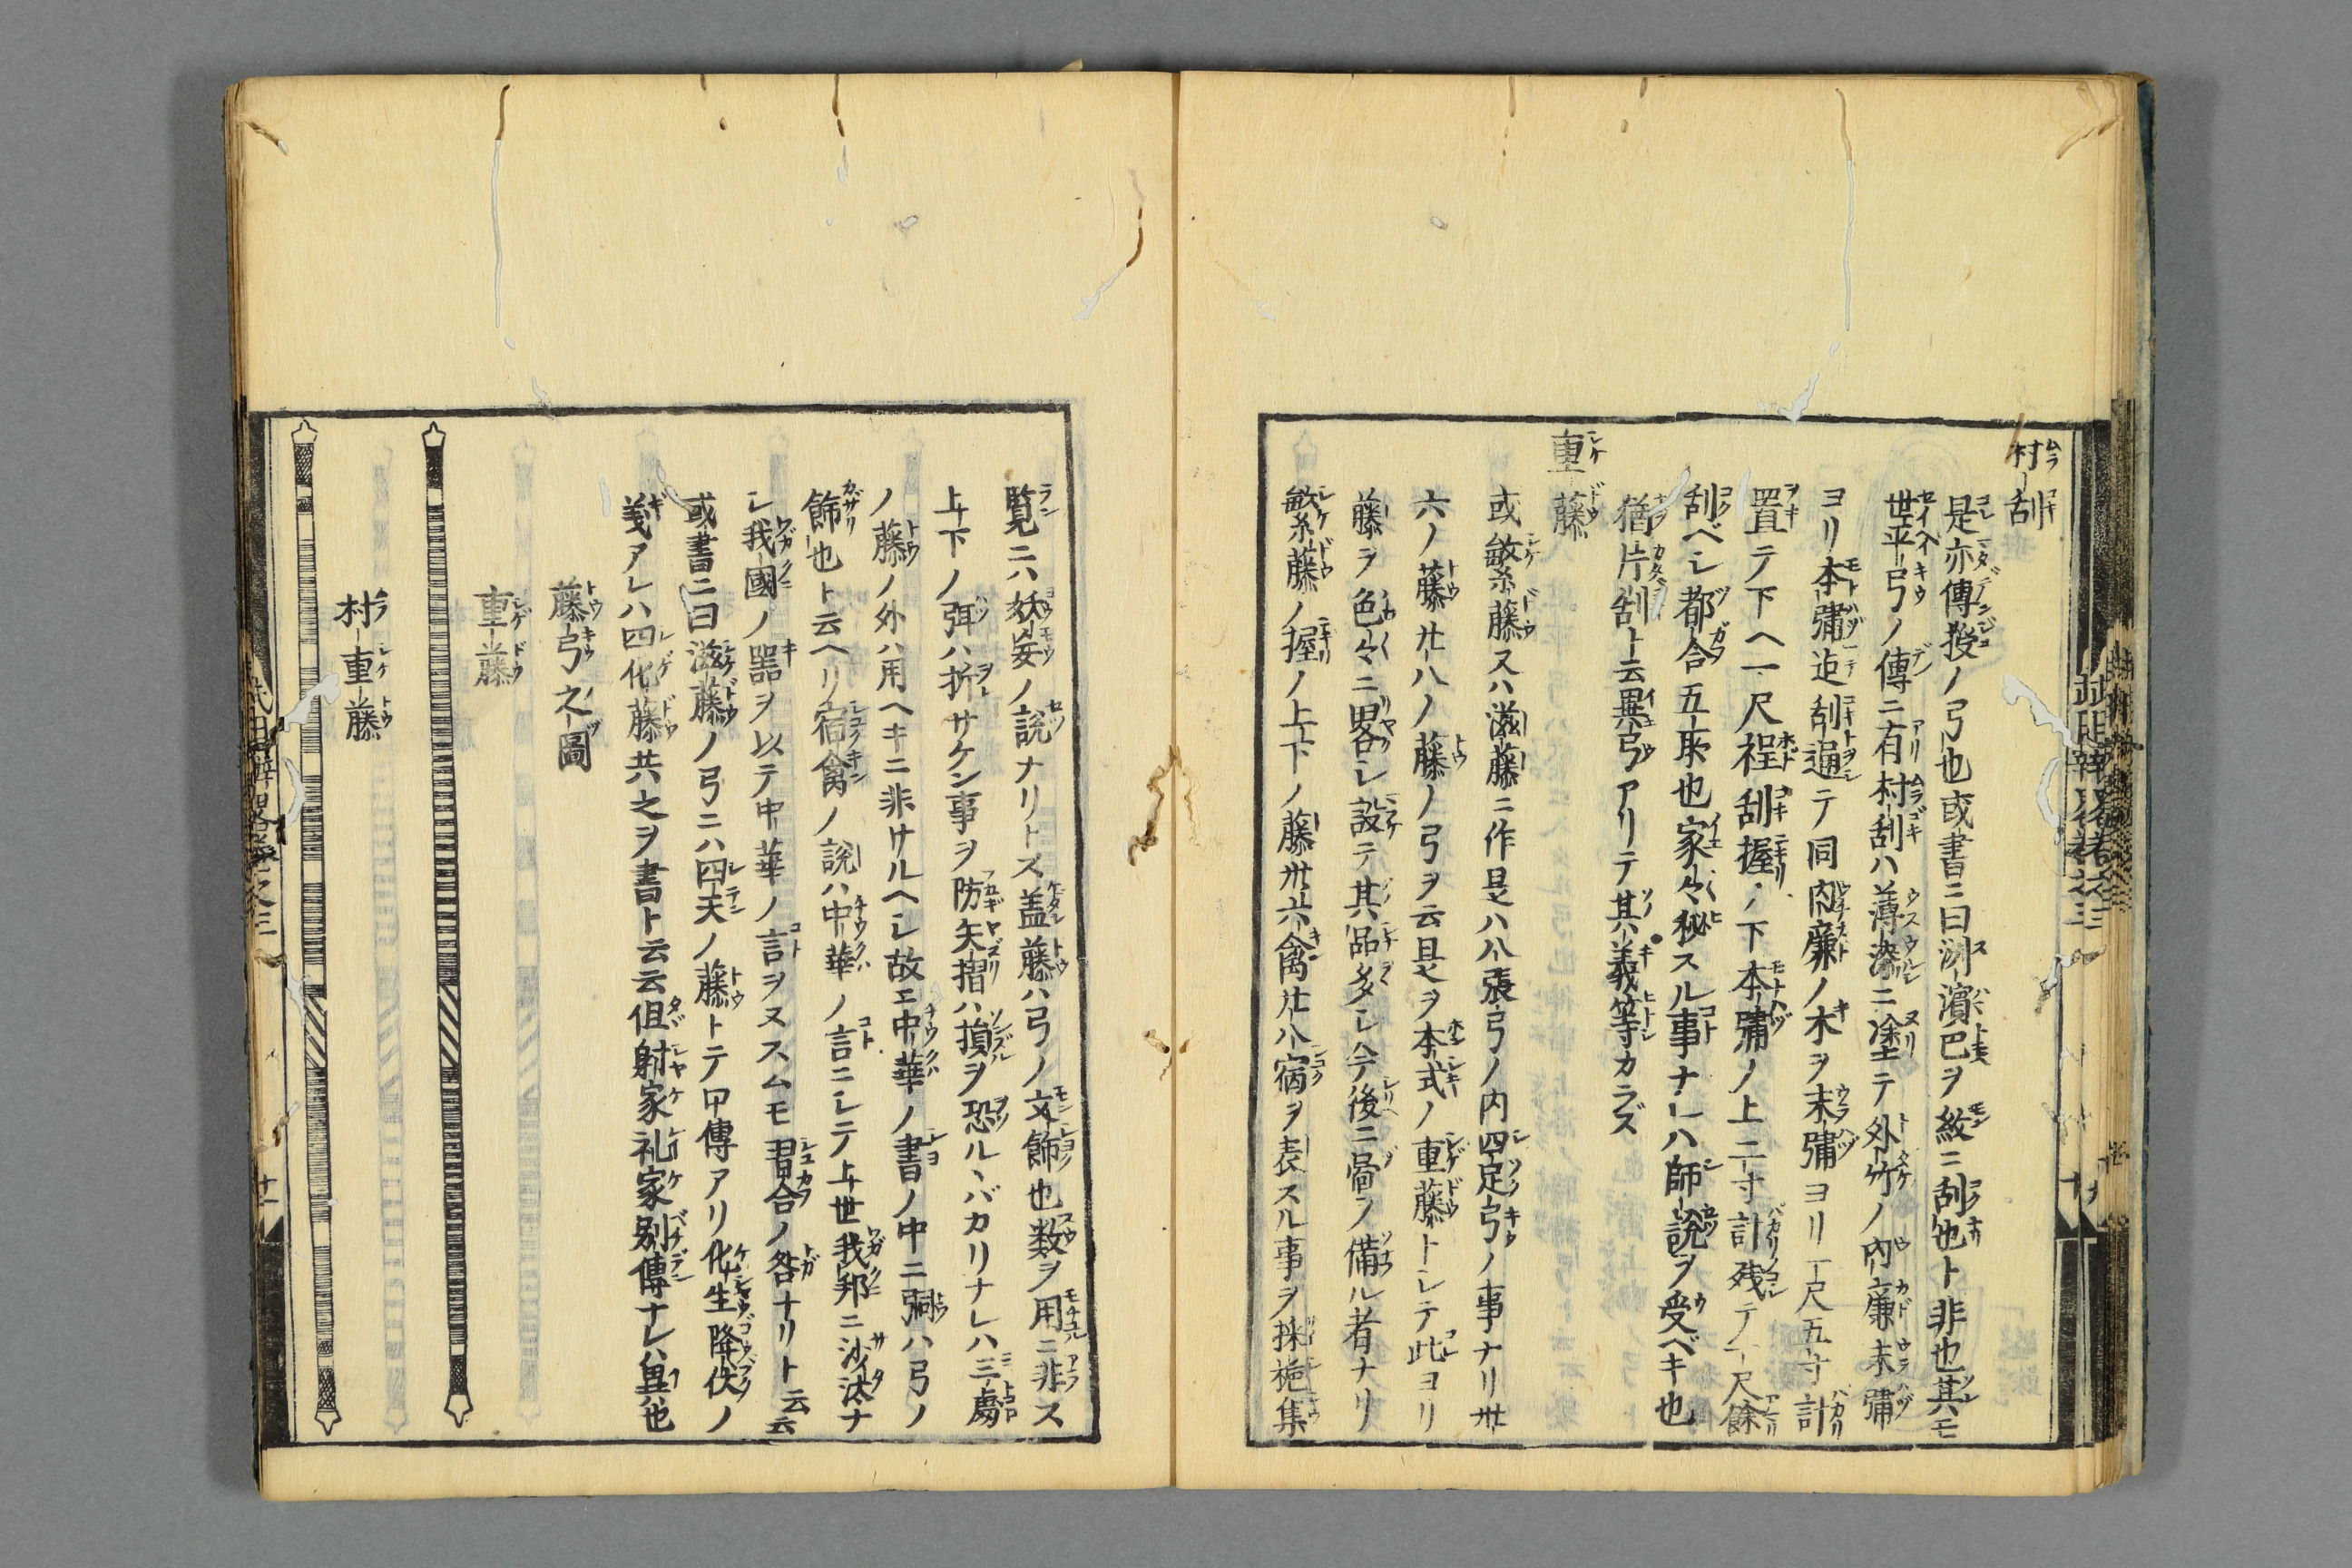 村刮
是亦傳授ノ弓也或書ニ曰洲濱巴ヲ紋ニ刮也ト非也其モ
世平弓ノ傳ニ有村刮ハ薄漆ニ塗テ外竹ノ內廉末彇
ヨリ本彇迠刮通テ同内廉ノ木ヲ末彇ヨリ一尺五寸計
置テ下ヘ一尺程刮握ノ下本彇ノ上二寸計残テ一尺餘
刮ベシ都合五所也家々秘スル事ナレハ師說ヲ受ベキ也
猶片刮ト云異弓アリテ其義等カラズ
重藤
或繁藤又ハ滋藤ニ作是ハ八張弓ノ内四足弓ノ事ナリ卅
六ノ藤廿八ノ藤ノ弓ヲ云是ヲ本式ノ重藤トシテ此ヨリ
藤ヲ色々ニ畧シ設テ其品多シ今後ニ圖ヲ備ル者ナリ
繁藤ノ握ノ上下ノ藤卅六禽廿八宿ヲ表スル事ヲ採䒾集
覧ニハ妖妄ノ説ナリトス盖藤ハ弓ノ文飾也数ヲ用ニ非ス
上下ノ弭ハ折サケン事ヲ防矢摺ハ損ヲ恐ルヽバカリナレハ三處
ノ藤ノ外ハ用ヘキニ非サルヘシ故ニ中華ノ書ノ中ニ彅ハ弓ノ
飾也ト云ヘリ宿禽ノ說ハ中華ノ言ニシテ上世我邦ニ沙汰ナ
シ我國ノ噐ヲ以テ中華ノ言ヲヌスムモ習合ノ咎ナリト云云
或書ニ曰滋藤ノ弓ニハ四天ノ藤トテ口傳アリ化生降伏ノ
義アレハ四化藤共之ヲ書ト云云但射家礼家别傳ナレハ異也
藤弓之圖
重藤
村重藤